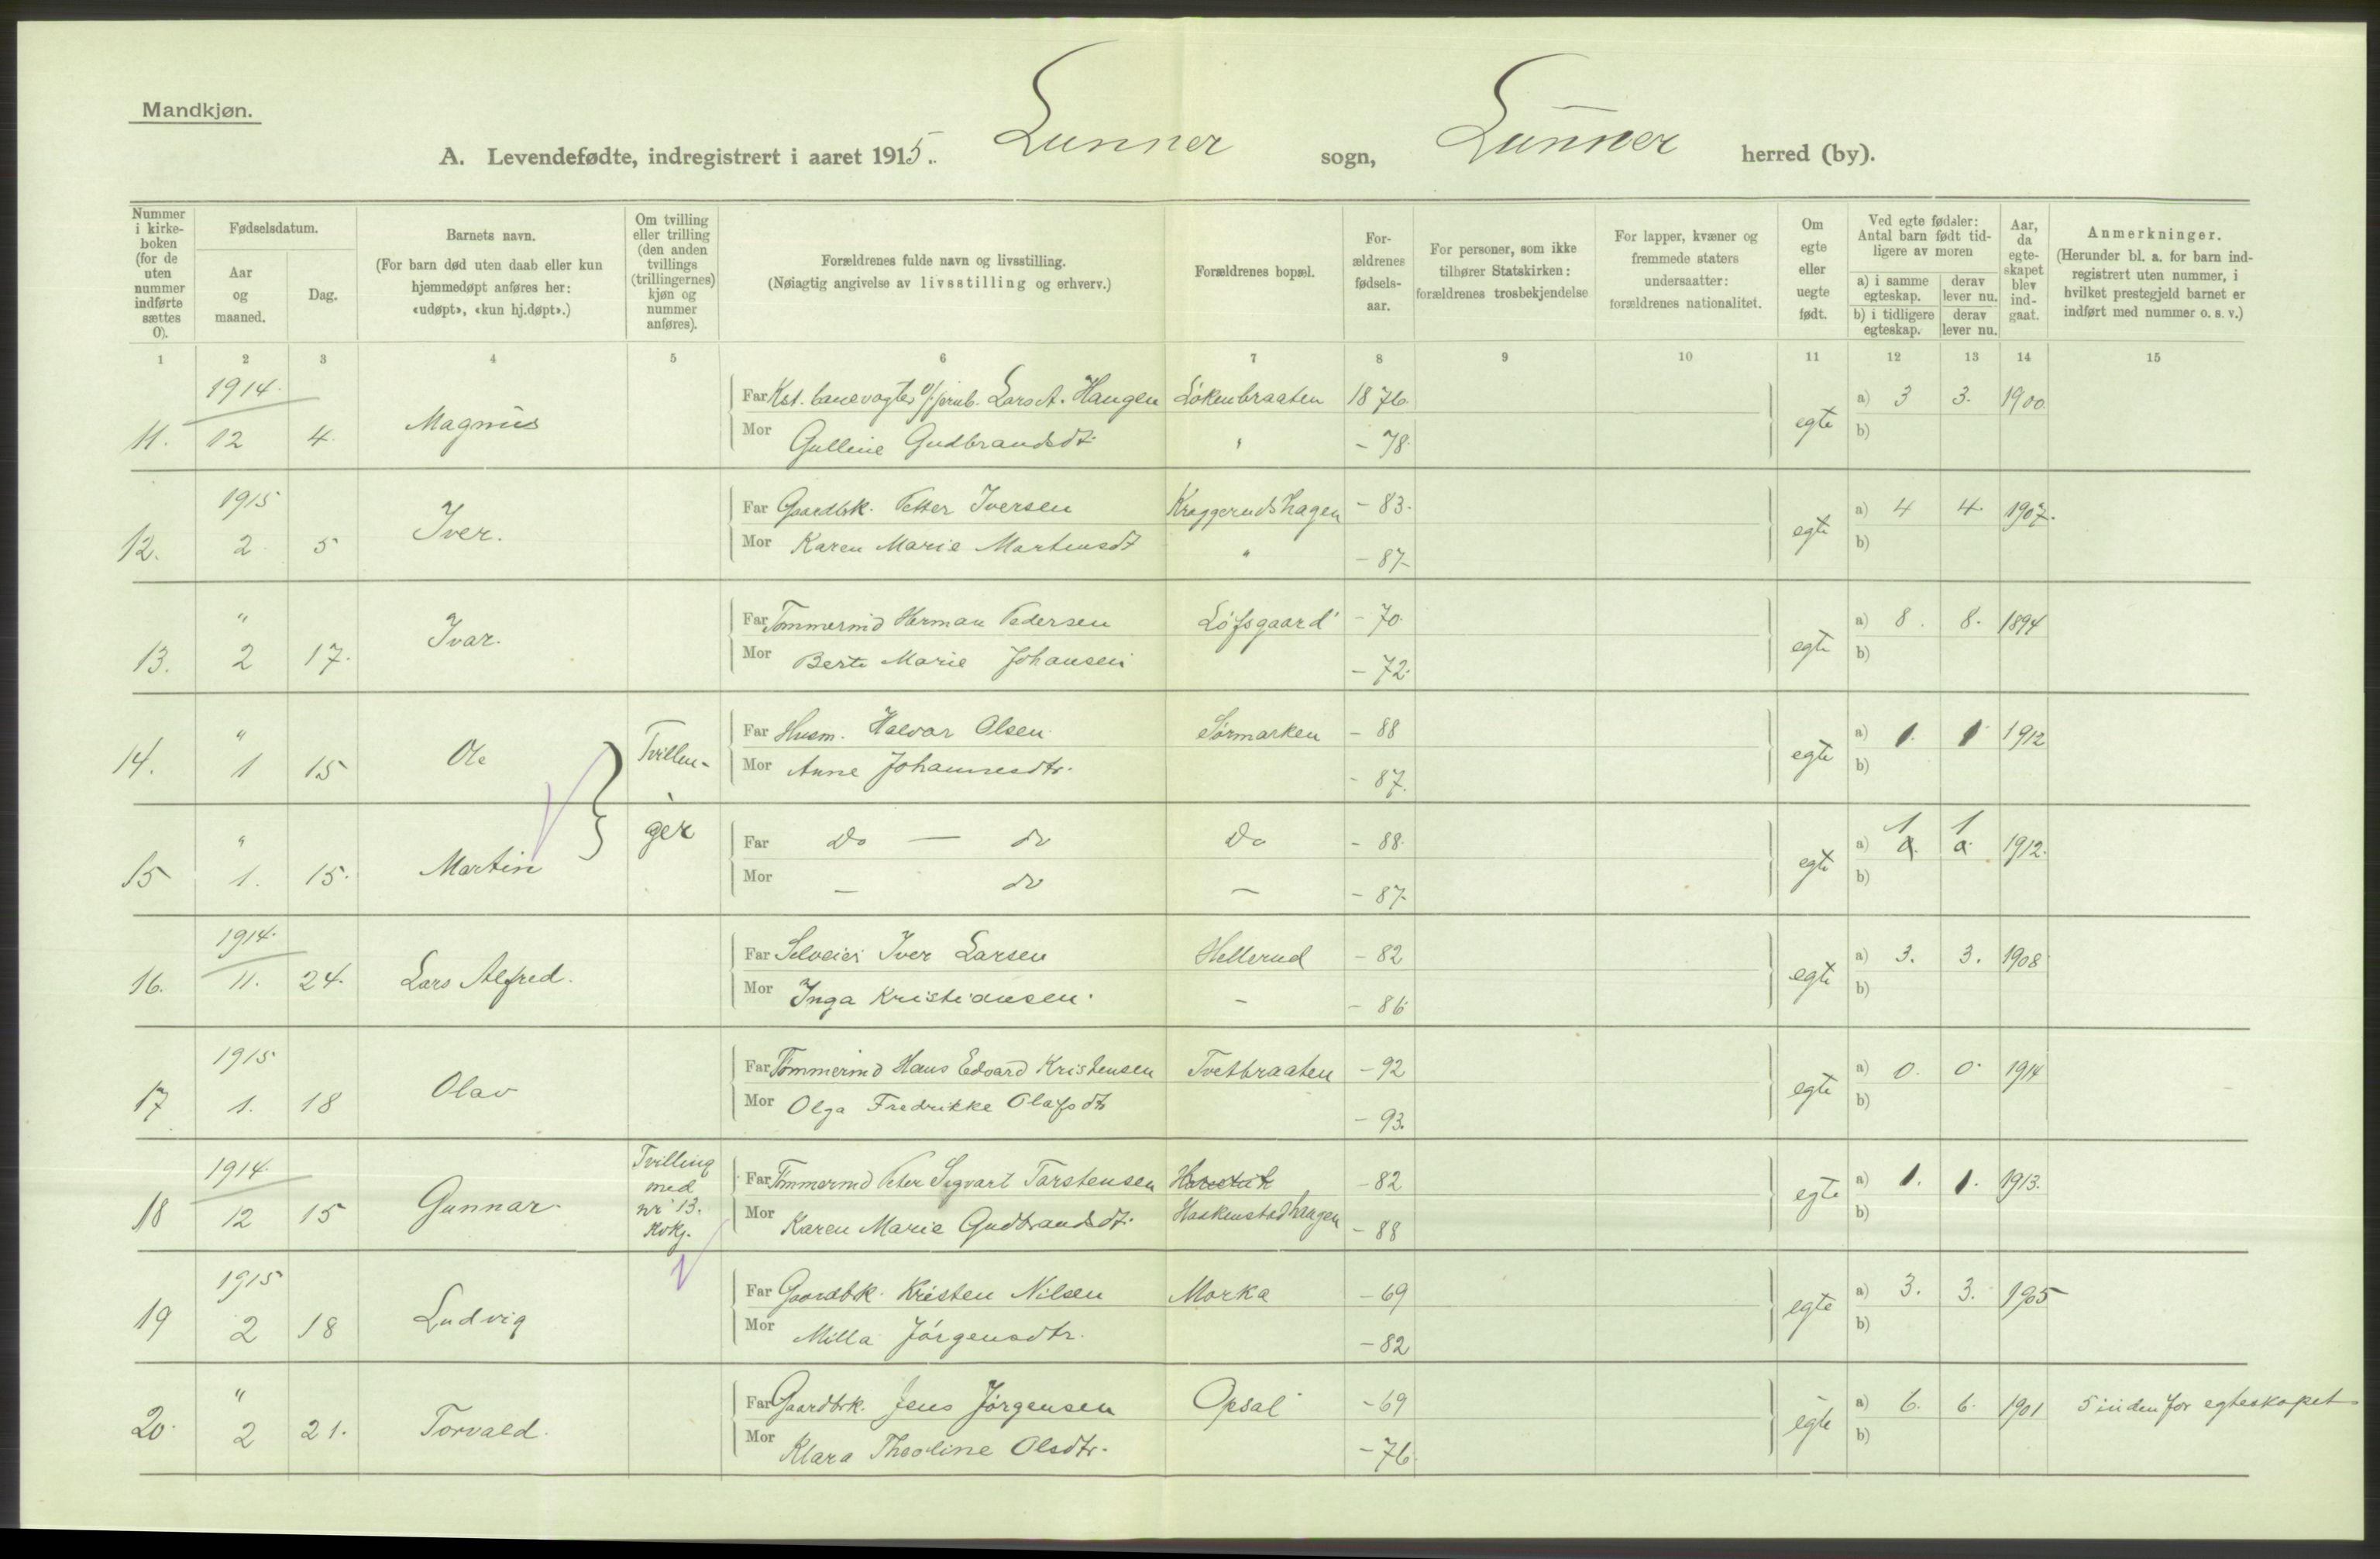 Mandkjøn.
A. Levendefødte, indregistrert i aaret 1915. Lunner sogn, Lunner herred (by).
Nummer i kirke-boken (for de uten nummer indførte sættes 0).
Fødselsdatum.
Aar og maaned.
Dag.
Barnets navn.
(For barn død uten daab eller kun hjemmedøpt anføres her: «udøpt», «kun hj.døpt».)
Om tvilling eller trilling (den anden tvillings (trillingernes) kjøn og nummer anføres).
Forældrenes fulde navn og livsstilling.
(Nøiagtig angivelse av livsstilling og erhverv.)
Forældrenes bopæl.
For-ældrenes fødsels-aar.
For personer, som ikke tilhører Statskirken: forældrenes trosbekjendelse
For lapper, kvæner og fremmede staters undersaatter: forældrenes nationalitet.
Om egte eller uegte født.
Ved egte fødsler: Antal barn født tid-ligere av moren
a) i samme egteskap. derav lever nu.
b) i tidligere egteskap. derav lever nu.
Aar, da egte-skapet blev ind-gaat.
Anmerkninger.
(Herunder bl. a. for barn ind-registrert uten nummer, i hvilket prestegjeld barnet er indført med nummer o. s. v.)
1 2 3 4 5 6 7 8 9 10 11 12 13 14 15
1914.
11. 12 4. Magnus
Far Kst. banevogter v/jernb. Lars A. Haugen Løkenbraaten 1876.
Mor Gulline Gudbrandsdt. " - 78.
egte a) 3 3. 1900.
b)
1915
12. 2 5 Iver.
Far Gaardbk. Petter Iversen Kraggerudshagen - 83.
Mor Karen Marie Martensdt " - 87-
egte a) 4 4. 1907.
b)
"
13. 2 17. Ivar.
Far Tømmermd Herman Pedersen Løfsgaard - 70.
Mor Berte Marie Johansen - 72.
egte a) 8. 8. 1894
b)
"
14. 1 15 Ole Tvillin-
Far Husm. Halvor Olsen Sørmarken - 88
Mor Anne Johannesdtr. - 87.
egte a) 1. 1 1912
b)
"
15 1. 15. Martin ger
Far Do — do Do - 88.
Mor — do — - 87-
egte a) 1 1 1912.
b)
1914.
16. 11. 24. Lars Alfred.
Far Selveier Iver Larsen Hellerud - 82
Mor Inga Kristiansen. - - 86
egte a) 3. 3. 1908
b)
1915
17 1. 18 Olav
Far Tømmermd Hans Edvard Kristensen Tvetbraaten - 92
Mor Olga Fredrikke Olafsdtr - 93.
egte a) 0. 0. 1914
b)
1914.
18 12 15 Gunnar Tvilling med nr 13. kvkj.
Far Tømmermd Peter Sigvart Torstensen - 82
Mor Karen Marie Gudbrandsdt. Haakenstadhaugen - 88
egte a) 1. 1. 1913.
b)
1915
19 2 18 Ludvig
Far Gaardbk. Kristen Nilsen Morka - 69
Mor Milla Jørgensdtr. - 82
egte a) 3. 3. 1905
b)
"
20. 2 21. Torvald.
Far Gaardbrk. Jens Jørgensen Opsal - 69
Mor Klara Theoline Olsdtr. - 76.
egte a) 6. 6. 1901 5 inden for egteskapet
b)